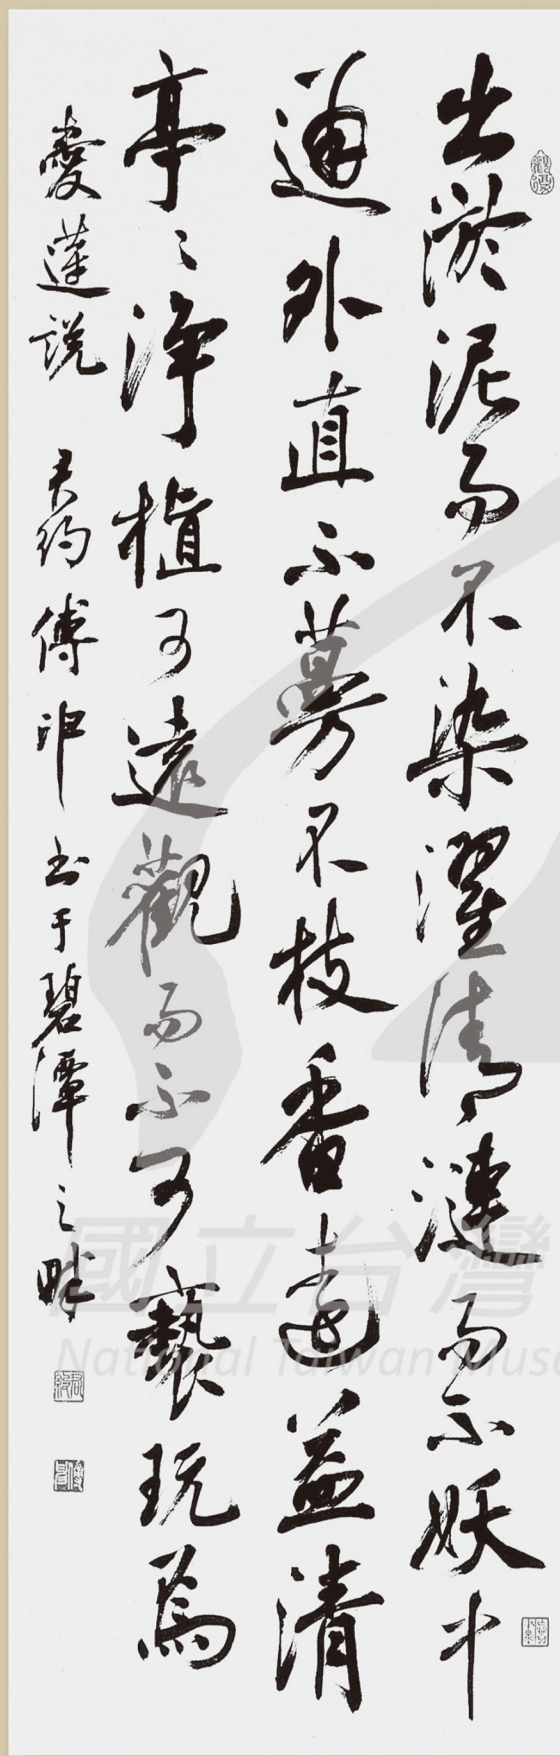 出淤泥而不染濯清漣而不妖中
通外直不蔓不枝香遠益清
亭々淨植可遠觀而不可褻玩焉
愛蓮說 君約傅申書于碧潭之畔
國立台灣
National Taiwan Muse